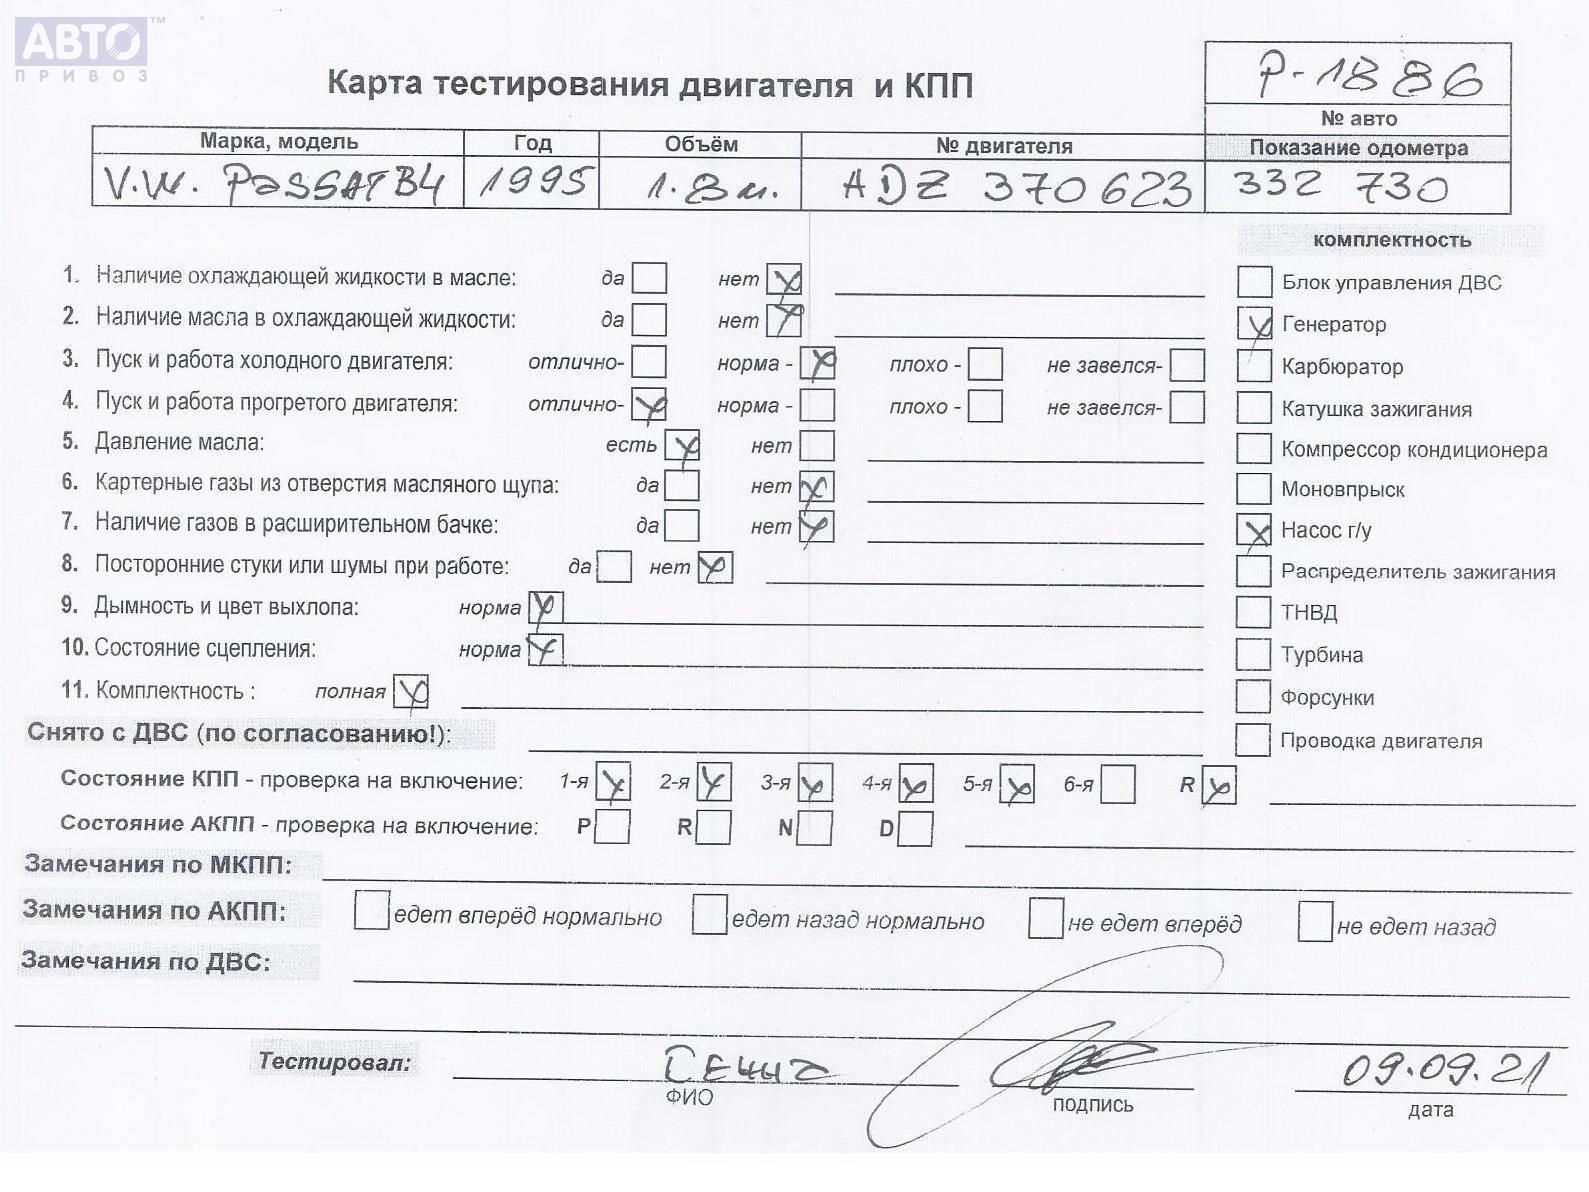 АВТО™
ПРИВОЗ
Карта тестирования двигателя и КПП
P-1886
№ авто
Марка, модель Год Объём № двигателя Показание одометра
V.W. PaSSAT B4 1995 1.8 м. ADZ 370623 332 730
комплектность
1. Наличие охлаждающей жидкости в масле: да нет
Блок управления ДВС
2. Наличие масла в охлаждающей жидкости: да нет
Генератор
3. Пуск и работа холодного двигателя: отлично- норма - плохо - не завелся-
Карбюратор
4. Пуск и работа прогретого двигателя: отлично- норма - плохо - не завелся-
Катушка зажигания
5. Давление масла: есть нет
Компрессор кондиционера
6. Картерные газы из отверстия масляного щупа: да нет
Моновпрыск
7. Наличие газов в расширительном бачке: да нет
Насос г/у
8. Посторонние стуки или шумы при работе: да нет
Распределитель зажигания
9. Дымность и цвет выхлопа: норма
ТНВД
10. Состояние сцепления: норма
Турбина
11. Комплектность : полная
Форсунки
Снято с ДВС (по согласованию!):
Проводка двигателя
Состояние КПП - проверка на включение: 1-я 2-я 3-я 4-я 5-я 6-я R
Состояние АКПП - проверка на включение: P R N D
Замечания по МКПП:
Замечания по АКПП: едет вперёд нормально едет назад нормально не едет вперёд не едет назад
Замечания по ДВС:
Тестировал: 09.09.21
ФИО подпись дата